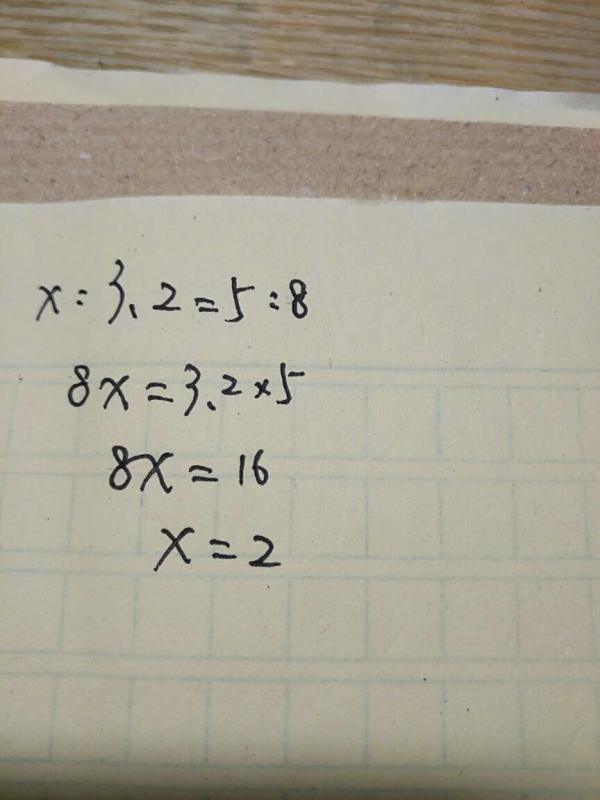 x:3.2=5:8
8x=3.2×5
8x=16
x=2